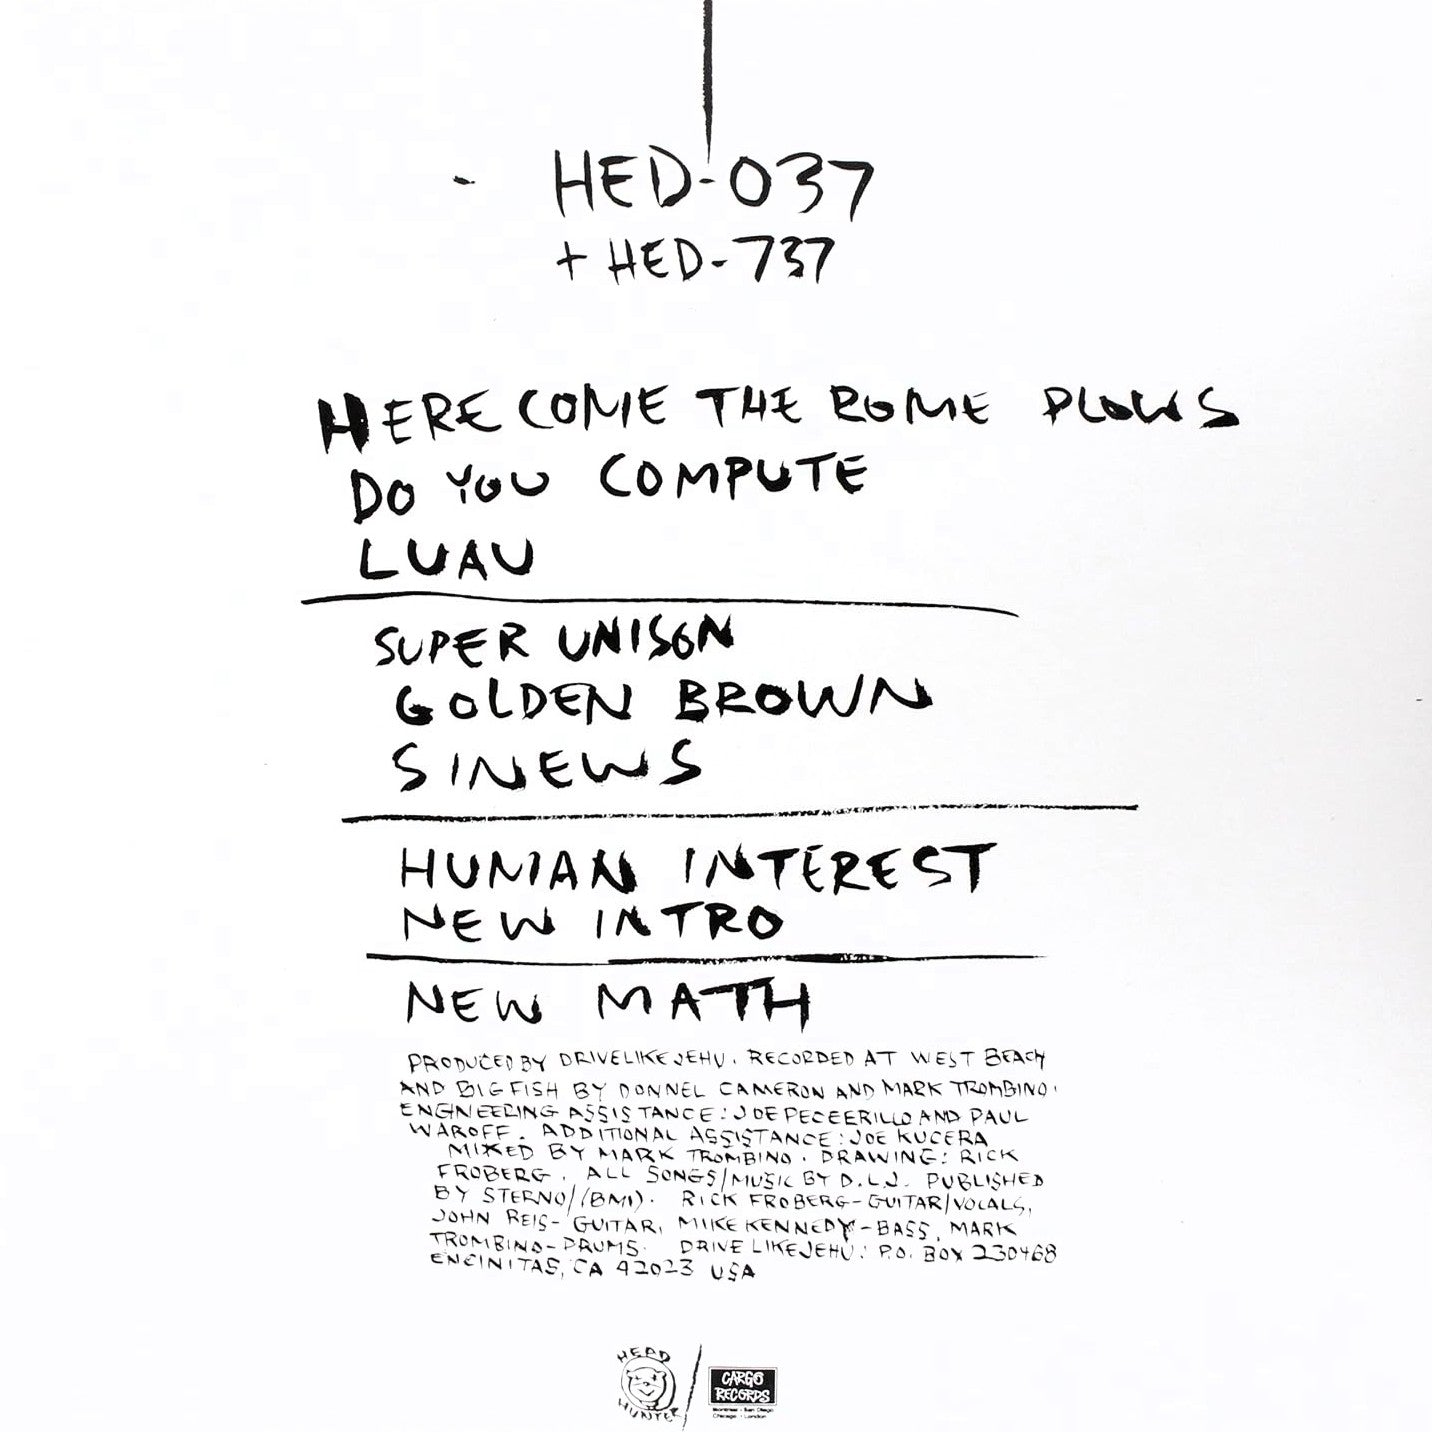 - HED-037
+ HED-737
HERE COME THE ROME PLOWS
DO YOU COMPUTE
LUAU
SUPER UNISON
GOLDEN BROWN
SINEWS
HUMAN INTEREST
NEW INTRO
NEW MATH
PRODUCED BY DRIVELIKEJEHU. RECORDED AT WEST BEACH
AND BIG FISH BY DONNEL CAMERON AND MARK TROMBINO.
ENGINEERING ASSISTANCE: JOE PECEERILLO AND PAUL
WAROFF. ADDITIONAL ASSISTANCE: JOE KUCERA
MIXED BY MARK TROMBINO. DRAWING: RICK
FROBERG. ALL SONGS/MUSIC BY D.L.J. PUBLISHED
BY STERNO/(BMI). RICK FROBERG-GUITAR/VOCALS,
JOHN REIS- GUITAR, MIKE KENNEDY-BASS, MARK
TROMBINO-DRUMS. DRIVE LIKE JEHU: P.O. BOX 230468
ENCINITAS, CA 92023 USA
HEAD
HUNTER
CARGO
RECORDS
Montreal - San Diego
Chicago - London